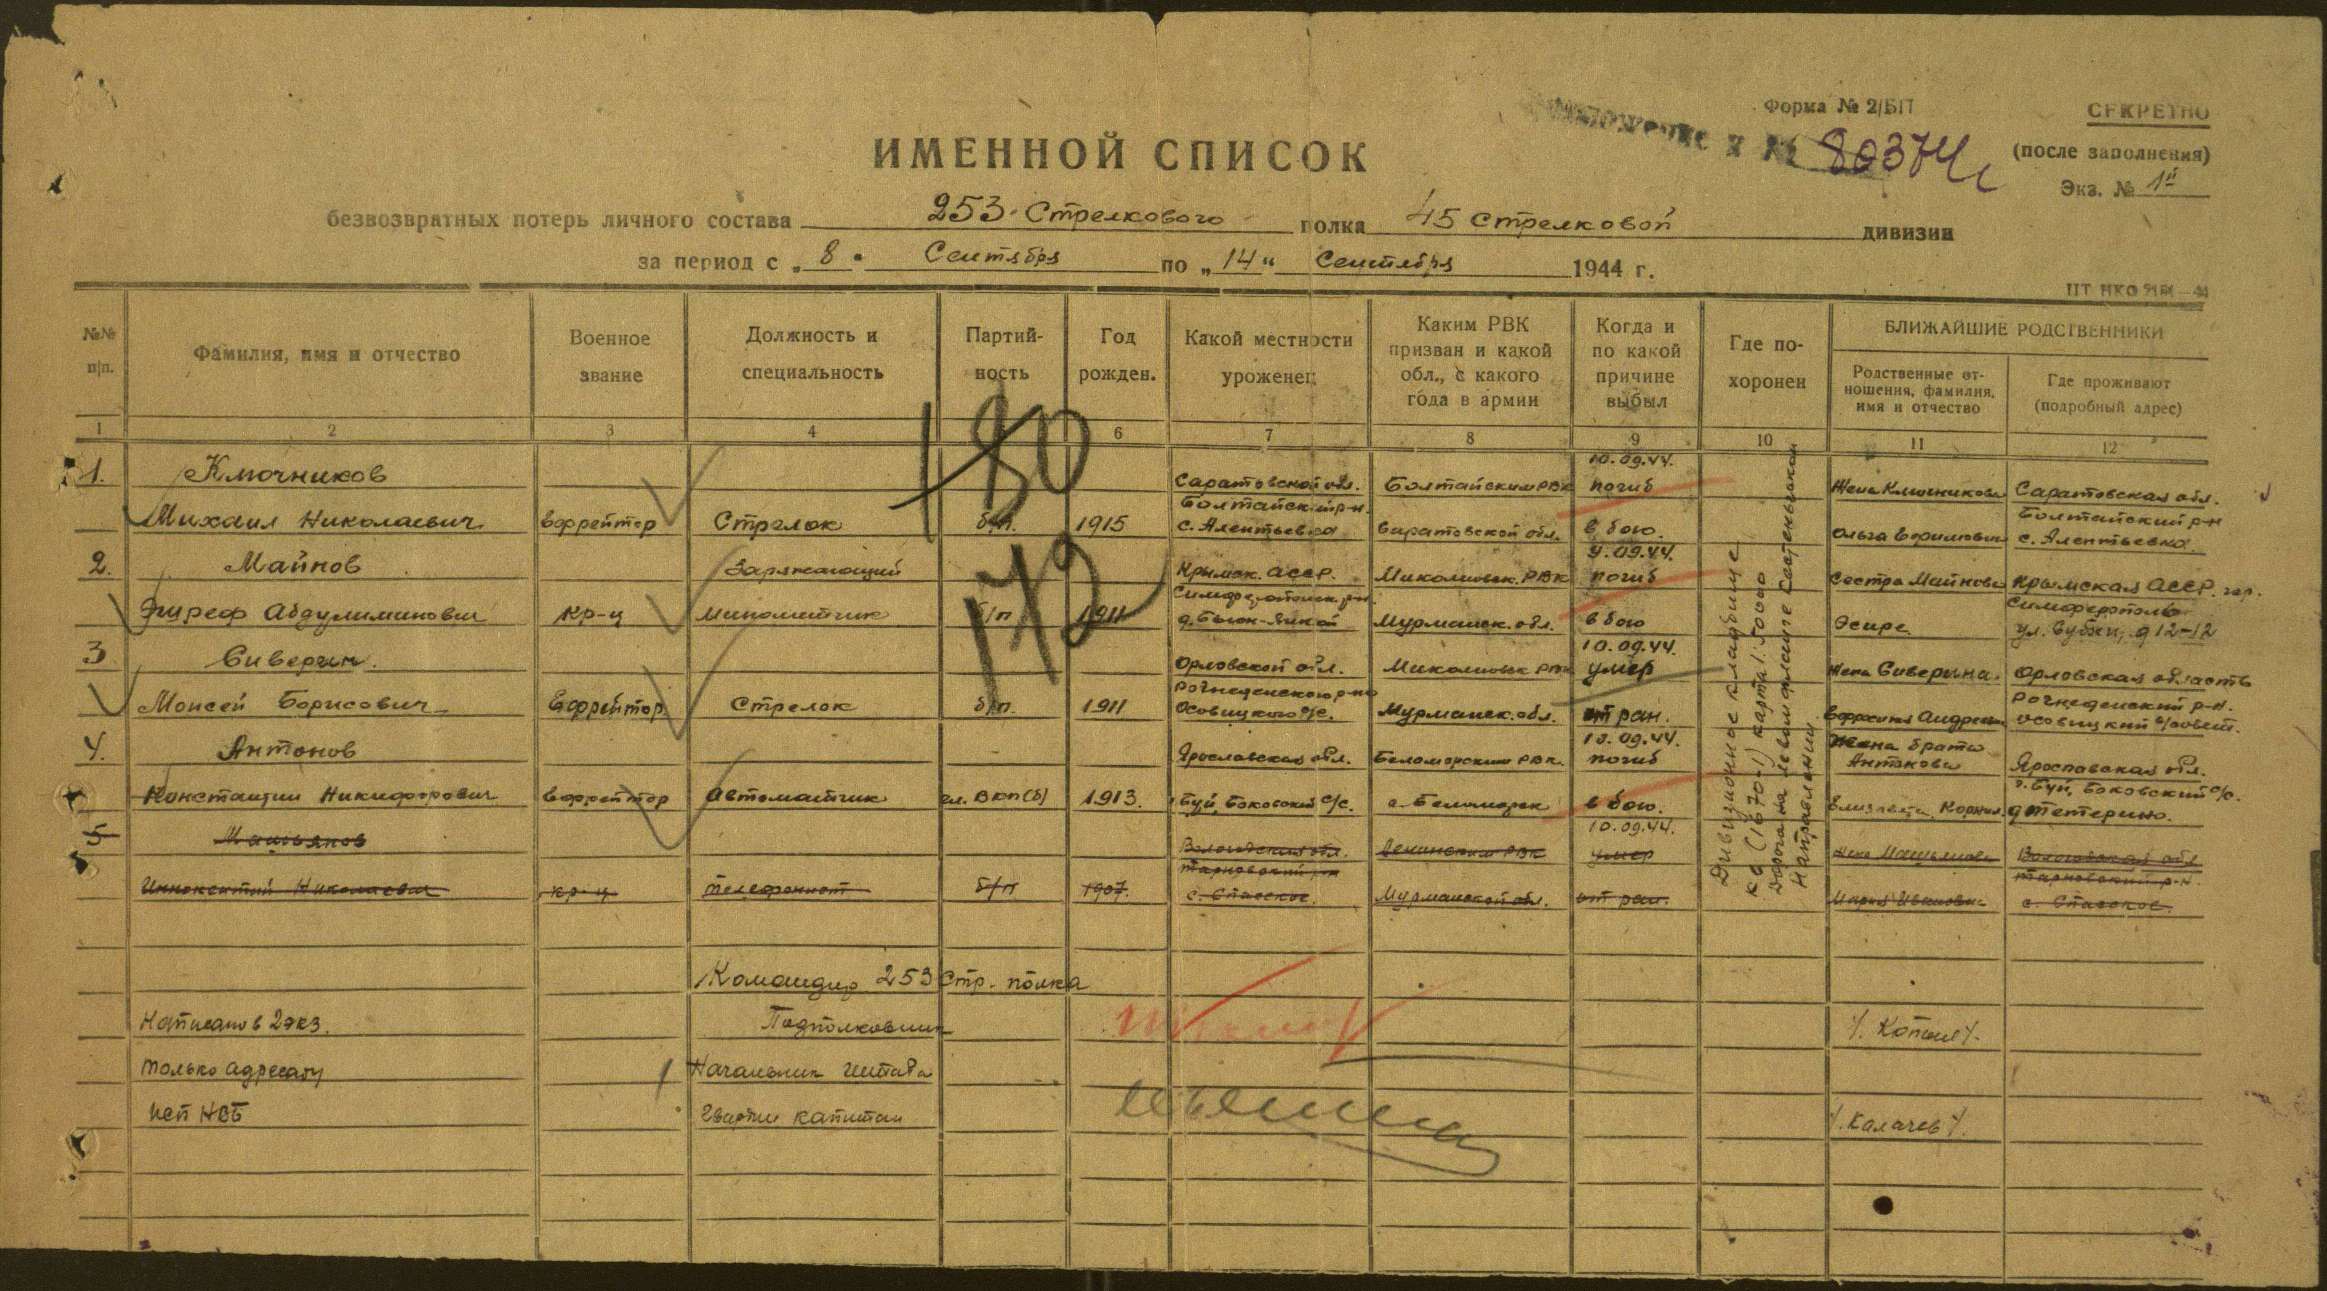 Форма № 2/БП
СЕКРЕТНО
(после заполнения)
Экз. № 1й
80374с
ИМЕННОЙ СПИСОК
безвозвратных потерь личного состава 253 Стрелкового полка 45 Стрелковой дивизии
за период с „8" Сентября по „14" Сентября 1944 г.
№№ п/п.
Фамилия, имя и отчество
Военное звание
Должность и специальность
Партий-
ность
Год рожден.
Какой местности уроженец
Каким РВК
призван и какой
обл., с какого
года в армии
Когда и
по какой
причине
выбыл
Где по-
хоронен
БЛИЖАЙШИЕ РОДСТВЕННИКИ
Родственные от-
ношения, фамилия,
имя и отчество
Где проживают
(подробный адрес)
1 2 3 4 6 7 8 9 10 11 12
180
172
10.09.44.
1. Ключников Саратовской обл. Болтайским РВК погиб Жена Ключникова Саратовская обл.
Болтайский р-н. Болтайский р-н
Михаил Николаевич Ефрейтор Стрелок б/п. 1915 с. Алентьевка Саратовской обл. в бою. Ольга с. Алентьевка.
9.09.44.
2. Майнов Заряжающий Крымск. АССР. РВК погиб Сестра Майнова Крымская АССР. гор.
Симферополь
кр-ц минометчик б/п 1911 Мурманск. обл. в бою Эсире д 12-12
10.09.44.
3 Сиверин. Орловской обл. РВК умер Жена Сиверина. Орловская область
Моисей Борисович Ефрейтор Стрелок б/п. 1911 Мурманск. обл. от ран. Осовицкий с/совет.
10.09.44.
4. Антонов Ярославская обл. Беломорским РВК. погиб Жена брата
Антонова Ярославская обл.
Константин Никифорович Ефрейтор Автоматчик чл. ВКП(б) 1913. Буй, Боковский с/с. г. Беломорск в бою. Елизавета д Тетерино.
г. Буй, Боковский с/с.
10.09.44.
5 Машьянов Вологодская обл. Ленинским РВК умер Жена Машьянова Вологодская обл
Тарновский р-н Тарновский р-н.
Иннокентий Николаевич кр-ц телефонист б/п 1907. с. Спасское. Мурманской обл. от ран. Мария Ивановна с. Спасское.
Дивизионное кладбище
кв (1670-1) карта 1:50000
направлении
Командир 253 Стр. полка
Написано в 2 экз. Подполковник
только адресату Начальник штаба
исп НСБ Гвардии капитан /. Калачев /.